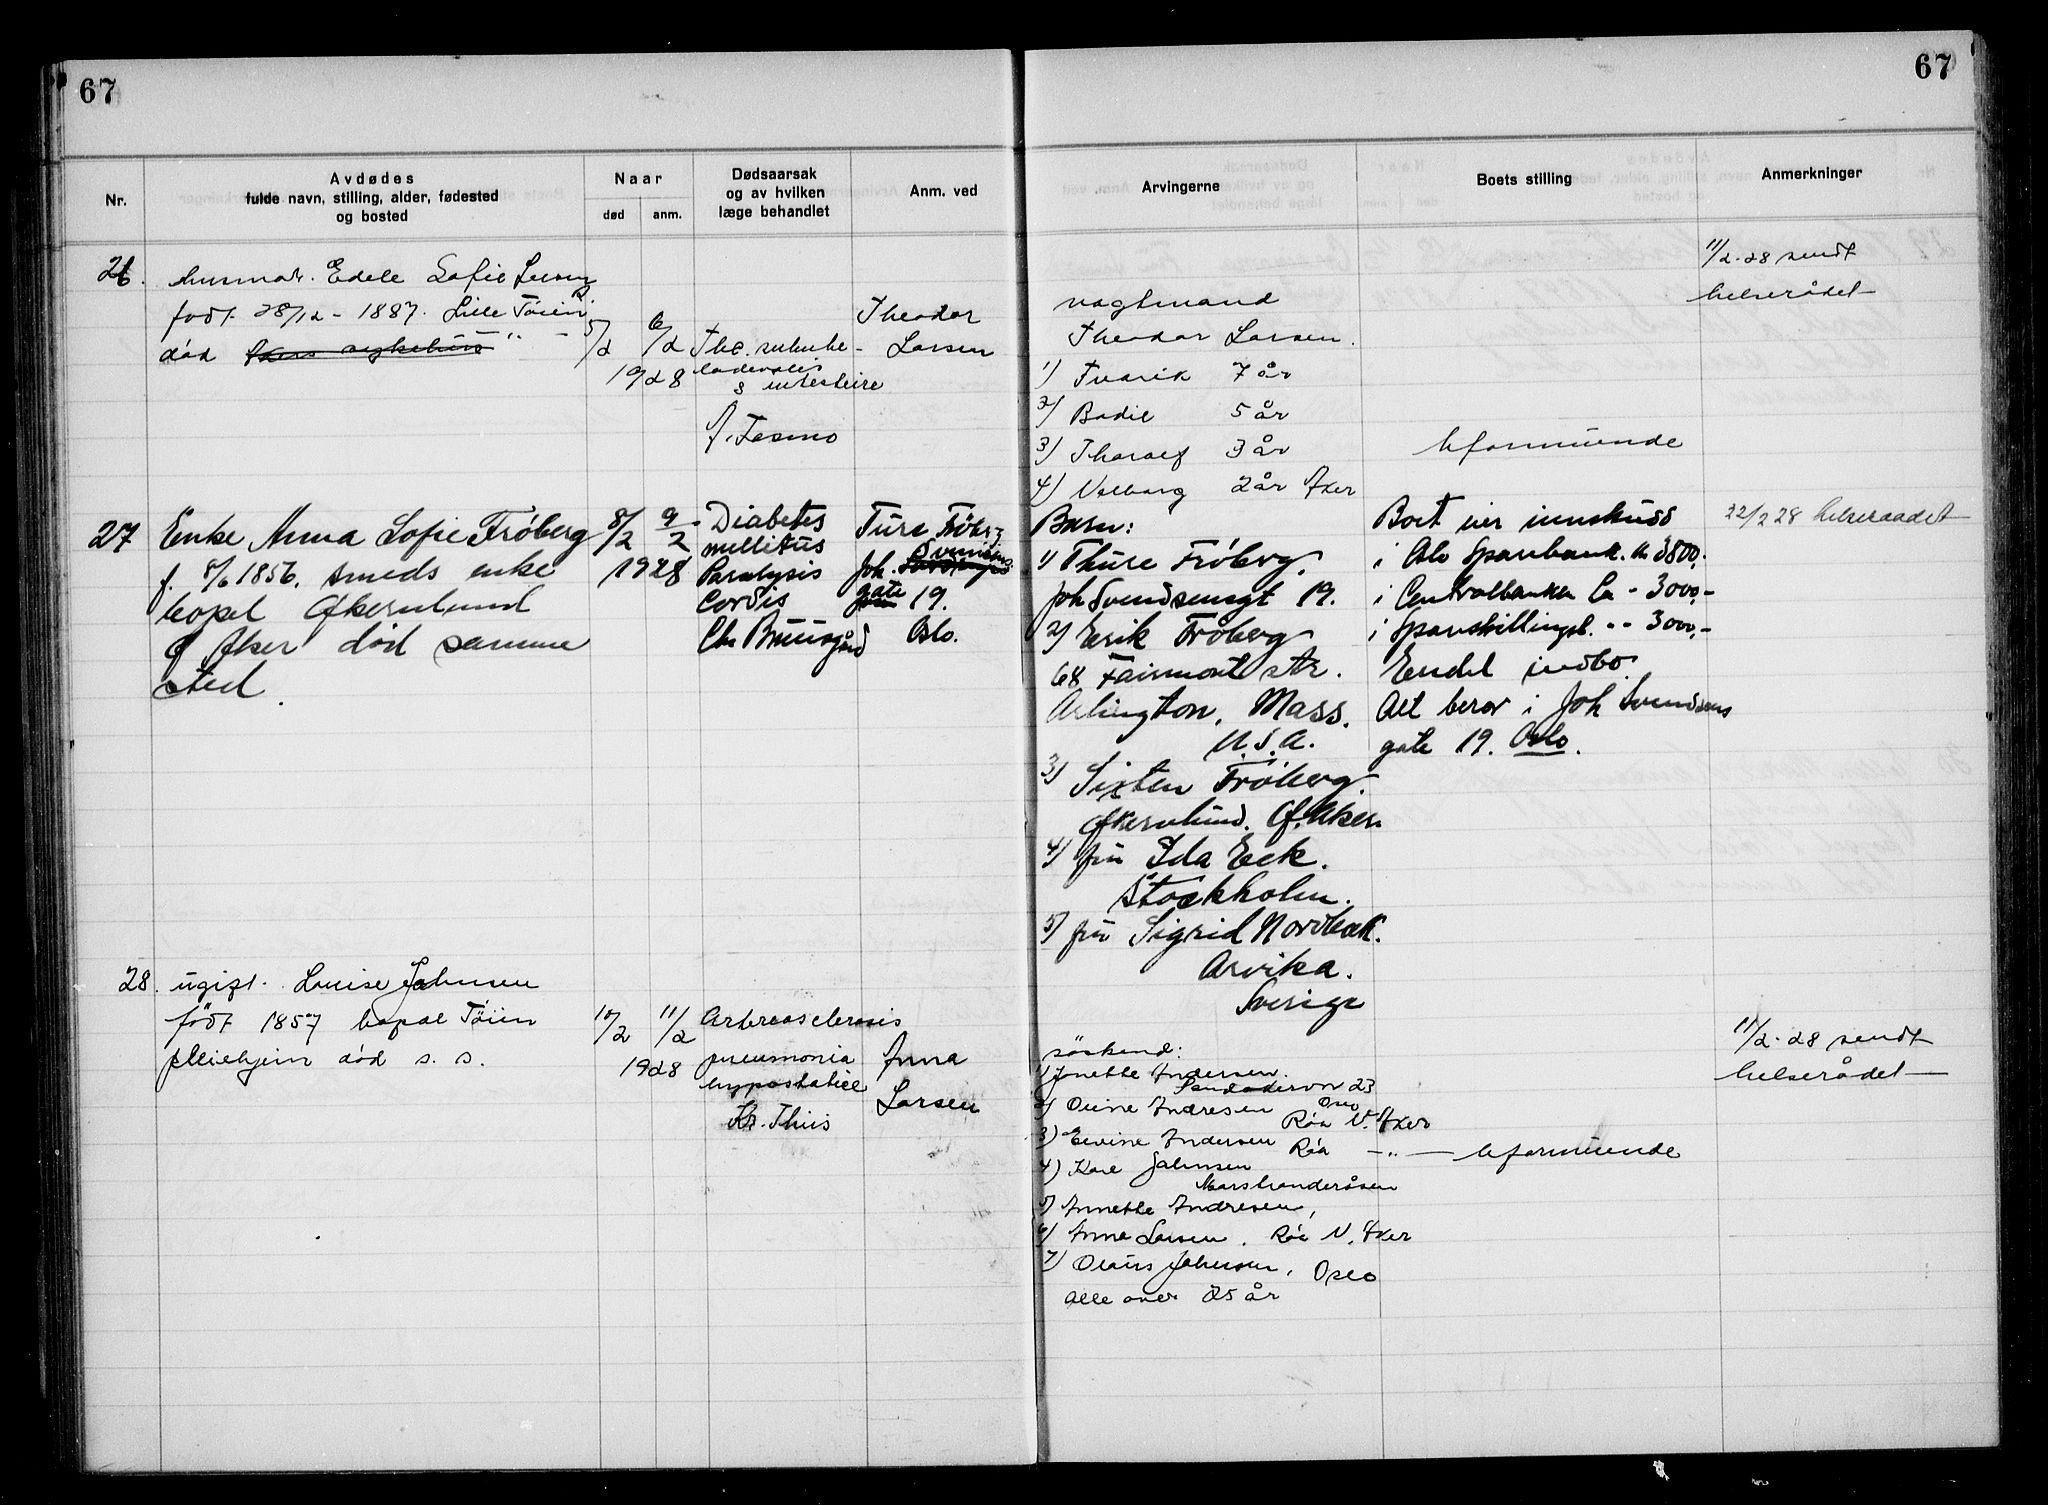 67
67
Nr.
Avdødes
fulde navn, stilling, alder, fødested
og bosted
Naar
død
anm.
Dødsaarsak
og av hvilken
læge behandlet
Anm. ved
Arvingerne
Boets stilling
Anmerkninger
26.
husmor. Edele Sofie
født 28/12 - 1887. Lille Tøien
død Akers sykehus
5/2 6/2
1928
& intestine
Tasmo
Theodor
Larsen
vagtmand
Theodor Larsen.
1) Tvarik 7 år
2) Bodil 5 år
3) Thoralf 3 år
4) Valborg 2 år Aker
Uformuende
11/2-28 sendt
helserådet
27
Enke Anna Sofie Frøberg
f. 8/6 1856. smeds enke
bopel Økernlund
Ø Aker død samme
sted.
8/2 9/2
1928
Diabetes
mellitus
Paralysis
Cordis
Chr Bruusgård
Ture Frøberg
Joh. Svendsens
gate 19.
Oslo.
Barn:
1) Thure Frøberg.
Joh Svendsensgt 19.
2) Erik Frøberg
68 Fairmont str.
Arlington, Mass.
U.S.A.
3) Sixten Frøberg.
Økernlund. Ø. Aker.
4) fru Ida Eek.
Stockholm.
5) fru Sigrid Nordbak.
Arvika.
Sverige
Boet eier innskudd
i Oslo Sparebank. kr 3800,-
i Centralbanken Ca - 3000,-
i Spareskillingsb. -"- 3000,-
Endel indbo.
Alt beror i Joh Svendsens
gate 19. Oslo.
22/2 28 helseraadet
28.
ugift. Louise Johnsen
født 1857 bopæl Tøien
pleiehjem død s. s.
10/2 11/2
1928
Arteriosclerosis
pneumonia
hypostatica
Kr. Thiis
Anna
Larsen
søskend:
1) Jonette Andersen.
23
Oslo
2) Oline Andresen Røa V. Aker
3) Elvine Andersen Røa -"-
4) Karl Johnsen
5) Annette Andresen,
6) Anna Larsen. Røa V. Aker
7) Olaus Johnsen, Oslo
Alle over 25 år
Uformuende
11/2-28 sendt
helserådet